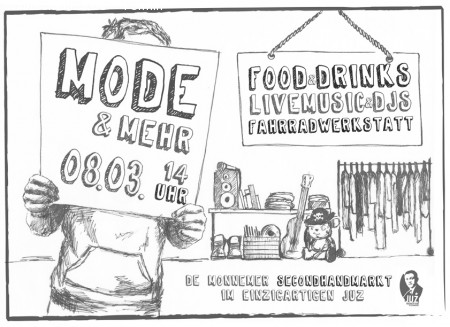 MODE
& MEHR
08.03. 14 UHR
FOOD & DRINKS
LIVEMUSIC & DJS
FAHRRADWERKSTATT
DE MONNEMER SECONDHANDMARKT
IM EINZIGARTIGEN JUZ
JUZ